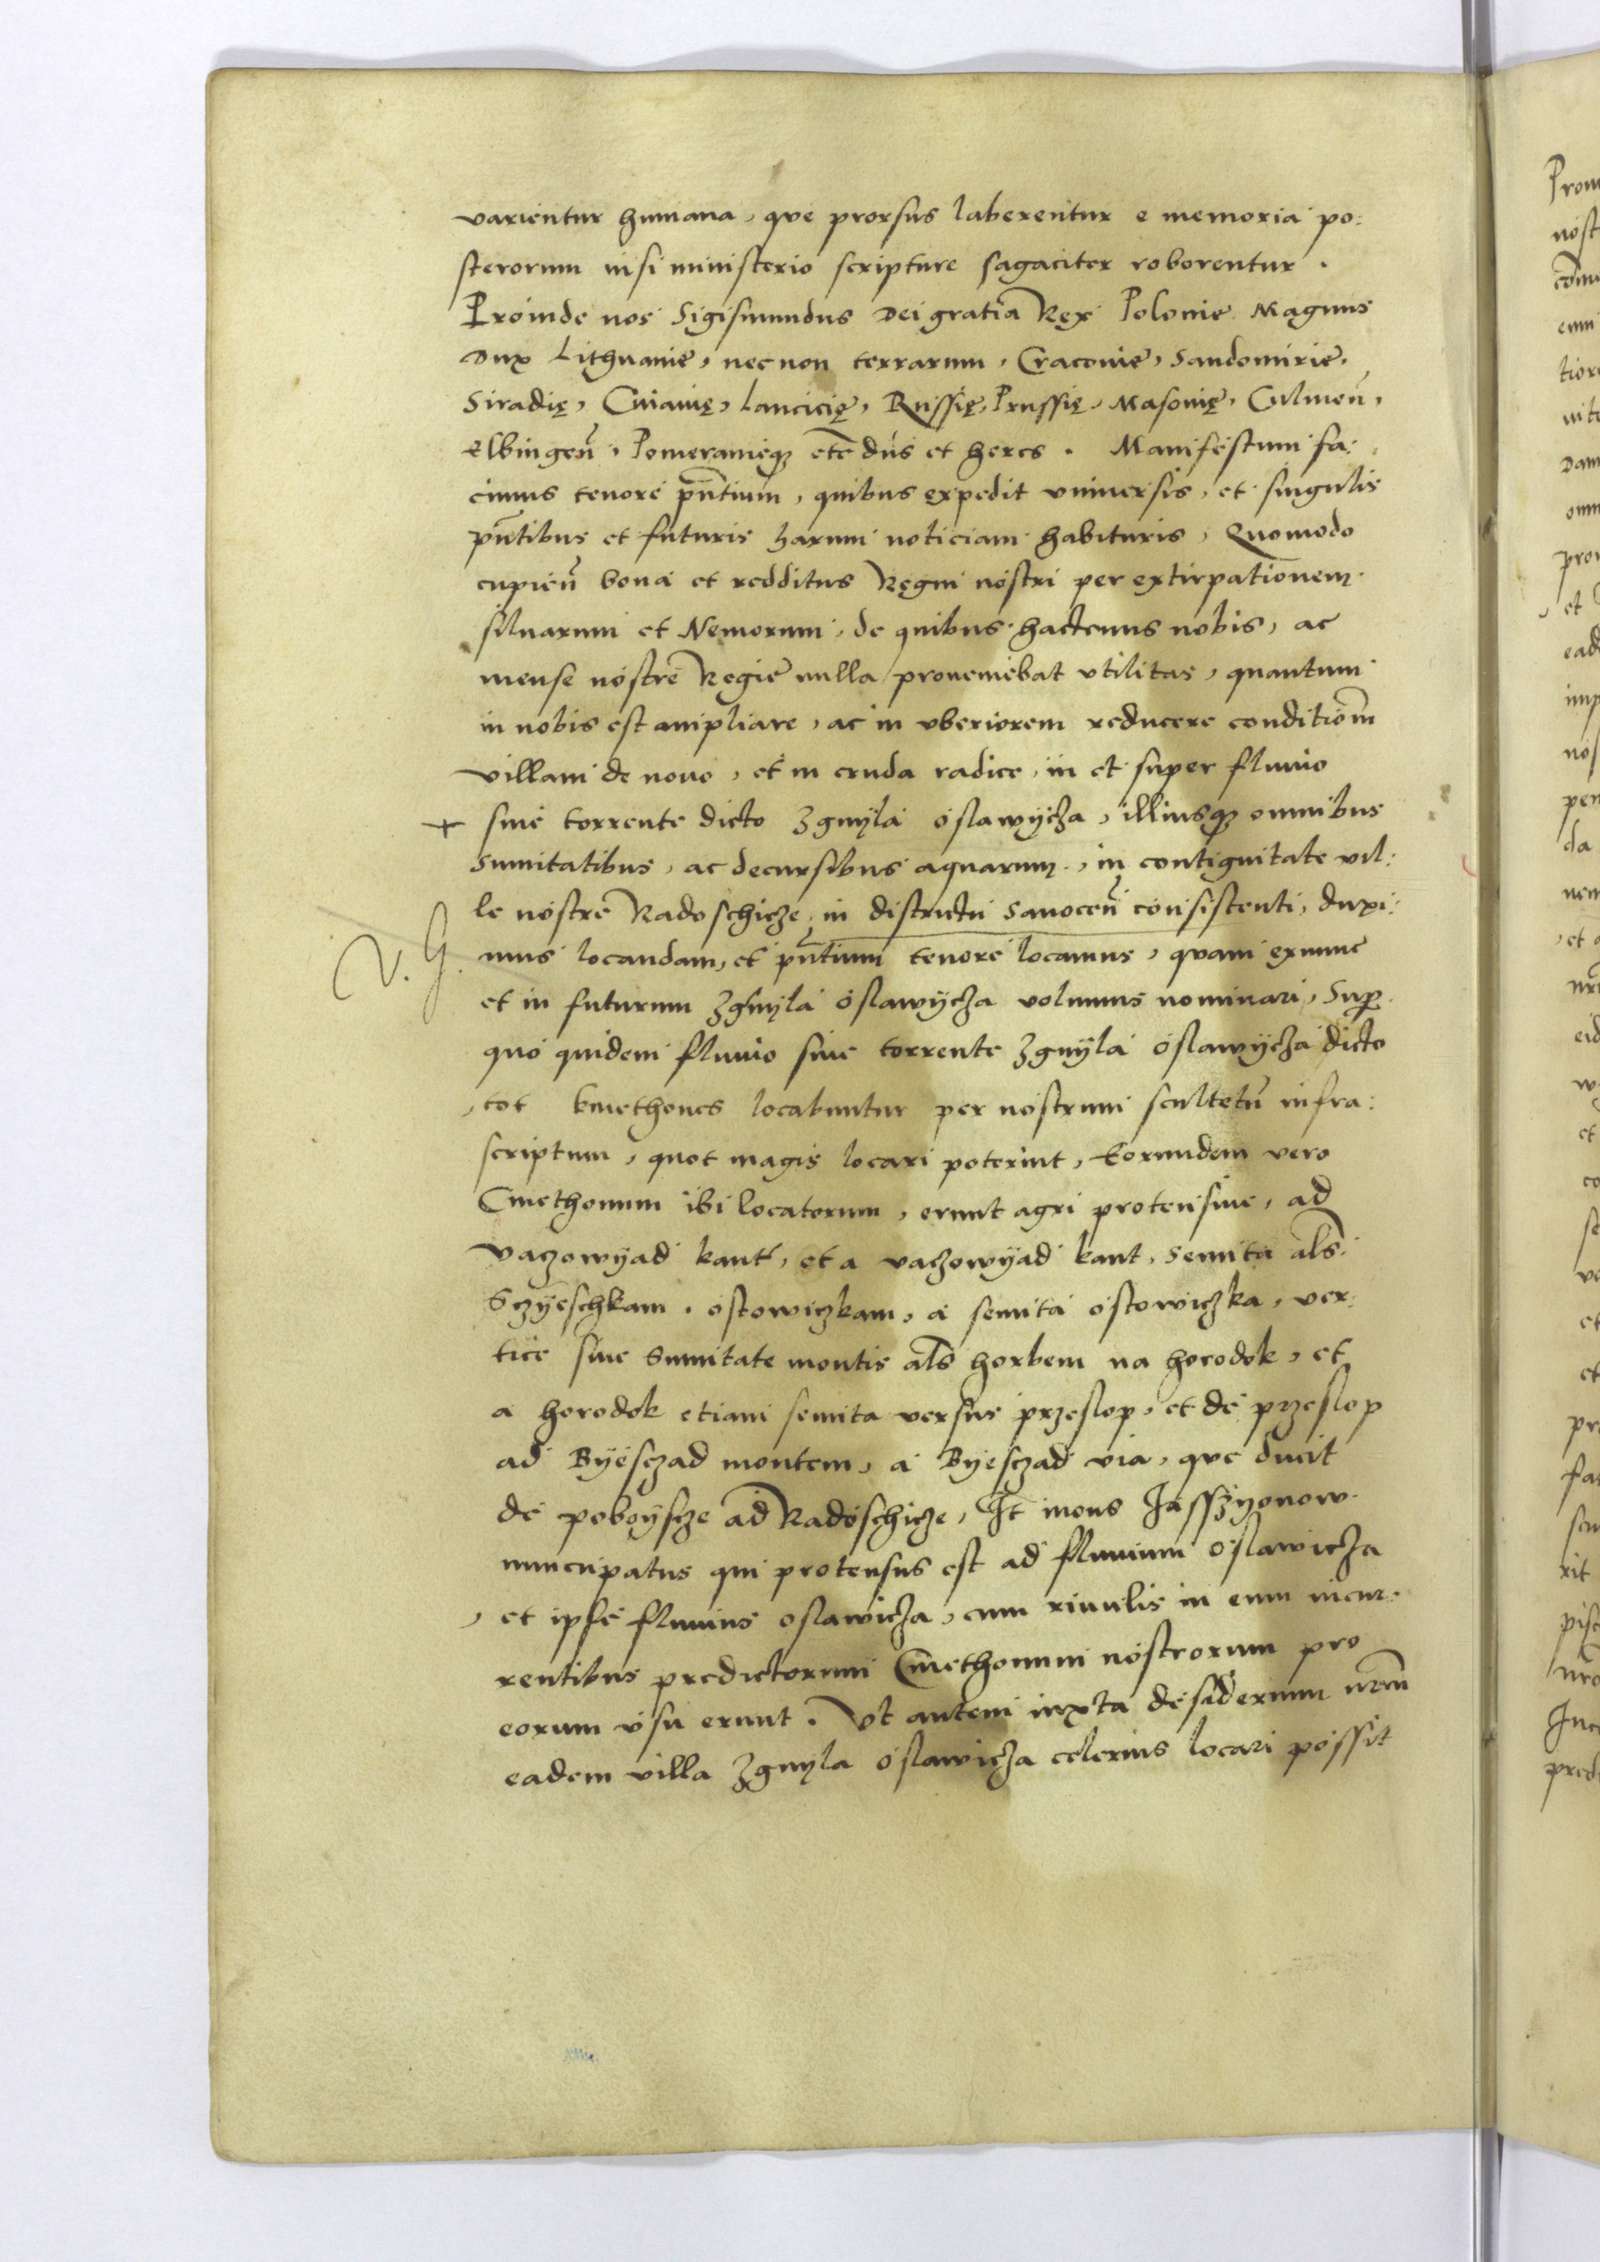 varientur humana, que prorsus laberentur e memoria po:
sterorum nisi ministerio scripture sagaciter roborentur.
Proinde nos Sigismundus Dei gratia Rex Polonie Magnus
Dux Lithuanie, necnon terrarum, Cracovie, Sandomirie,
Siradię, Cuiavię, Lancicię, Russię, Prussię, Masovię, Culmen̄,
Elbingen̄, Pomeranieq₃ etc̄ dn̄s et heres. Manifestum fa:
cimus tenore pn̄tium, quibus expedit universis, et singulis
pn̄tibus et futuris harum noticiam habituris, Quomodo
cupien̄ bona et redditus Regni nostri per extirpationem
silvarum et Nemorum, de quibus hactenus nobis, ac
mense nostre Regie nulla proveniebat utilitas, quantum
in nobis est ampliare, ac in uberiorem reducere conditiōem
villam de novo, et in cruda radice, in et super fluvio
+ sive torrente dicto Zgnyla oslawÿcza, illiusq₃ omnibus
sumitatibus, ac decursibus aquarum, in contiguitate vil:
le nostre Radoschicze, in districtu Sanocen̄ consistenti, duxi:
V. G. mus locandam, et pn̄tium tenore locamus, quam exnunc
et in futurum Zgnyla oslawÿcza volumus nominari, Sup̱
quo quidem fluvio sive torrente Zgnÿla oslawÿcza dicto
, tot kmethones locabuntur per nostrum scultetū infra:
scriptum, quot magis locari poterint, Eorundem vero
Cmethonum ibi locatorum, erunt agri protensive, ad
vaczowÿad kant, et a vaczowÿad kant, semita als̄
Sczÿeschkam, ostowiczkam, a semita ostowiczka, ver:
tice sive Sumitate montis als̄ horbem na horodok, et
a horodok etiam semita versus przeslop, et de przeslop
ad Byesczad montem, a Byesczad via, que ducit
de poboÿscze ad Radoschicze, It̄ mons Jasszyonow
nuncupatus qui protensus est ad fluvium oslawicza
, et ipse fluvius oslawicza, cum rivulis in eum incur:
rentibus predictorum Cmethonum nostrorum pro
eorum usu erunt. Ut autem iuxta desiderium nr̄m
eadem villa Zgnyla oslawicza celerius locari possit